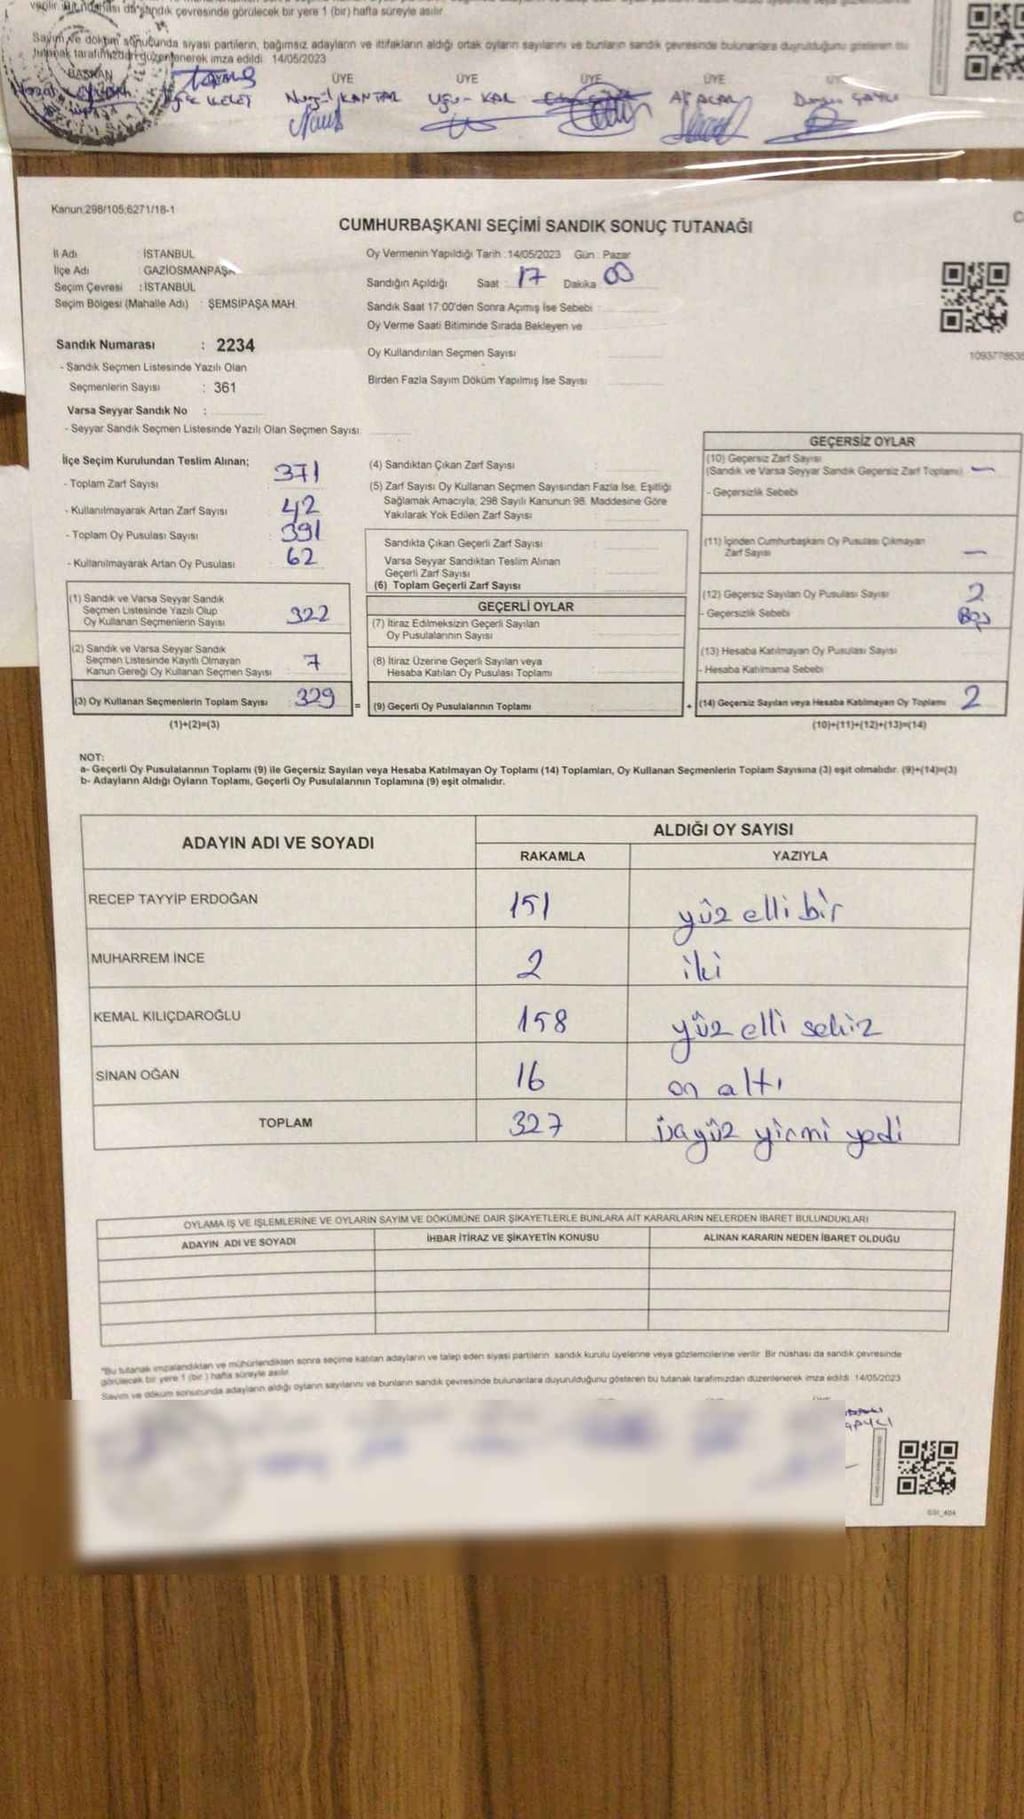 çevresinde görülecek bir yere 1 (bir) hafta süreyle asılır.
Sayım ve döküm sonucunda siyasi partilerin, bağımsız adayların ve ittifakların aldığı ortak oyların sayılarını ve bunların sandık çevresinde bulunanlara duyurulduğunu gösteren bu
tutanak tarafımızdan düzenlenerek imza edildi 14/05/2023
BAŞKAN ÜYE ÜYE ÜYE ÜYE
KANTAR KAL
Kanun:298/105;6271/18-1
CUMHURBAŞKANI SEÇİMİ SANDIK SONUÇ TUTANAĞI
İl Adı İSTANBUL
İlçe Adı GAZİOSMANPAŞA
Seçim Çevresi : İSTANBUL
Seçim Bölgesi (Mahalle Adı) : ŞEMSİPAŞA MAH.
Oy Vermenin Yapıldığı Tarih :14/05/2023 Gün : Pazar
Sandığın Açıldığı Saat : 17 Dakika 00
Sandık Saat 17:00'den Sonra Açımış İse Sebebi :
Oy Verme Saati Bitiminde Sırada Bekleyen ve
Oy Kullandırılan Seçmen Sayısı
Birden Fazla Sayım Döküm Yapılmış İse Sayısı
Sandık Numarası : 2234
- Sandık Seçmen Listesinde Yazılı Olan
Seçmenlerin Sayısı : 361
Varsa Seyyar Sandık No :
- Seyyar Sandık Seçmen Listesinde Yazılı Olan Seçmen Sayısı
İlçe Seçim Kurulundan Teslim Alınan;
- Toplam Zarf Sayısı 371
- Kullanılmayarak Artan Zarf Sayısı 42
- Toplam Oy Pusulası Sayısı 391
- Kullanılmayarak Artan Oy Pusulası 62
(1) Sandık ve Varsa Seyyar Sandık
Seçmen Listesinde Yazılı Olup
Oy Kullanan Seçmenlerin Sayısı 322
(2) Sandık ve Varsa Seyyar Sandık
Seçmen Listesinde Kayıtlı Olmayan
Kanun Gereği Oy Kullanan Seçmen Sayısı 7
(3) Oy Kullanan Seçmenlerin Toplam Sayısı 329
(1)+(2)=(3)
(4) Sandıktan Çıkan Zarf Sayısı
(5) Zarf Sayısı Oy Kullanan Seçmen Sayısından Fazla İse, Eşitliği
Sağlamak Amacıyla; 298 Sayılı Kanunun 98. Maddesine Göre
Yakılarak Yok Edilen Zarf Sayısı
Sandıkta Çıkan Geçerli Zarf Sayısı
Varsa Seyyar Sandıktan Teslim Alınan
Geçerli Zarf Sayısı
(6) Toplam Geçerli Zarf Sayısı
GEÇERLİ OYLAR
(7) İtiraz Edilmeksizin Geçerli Sayılan
Oy Pusulalarının Sayısı
(8) İtiraz Üzerine Geçerli Sayılan veya
Hesaba Katılan Oy Pusulası Toplamı
= (9) Geçerli Oy Pusulalarının Toplamı
GEÇERSİZ OYLAR
(10) Geçersiz Zarf Sayısı
(Sandık ve Varsa Seyyar Sandık Geçersiz Zarf Toplamı) —
- Geçersizlik Sebebi
(11) İçinden Cumhurbaşkanı Oy Pusulası Çıkmayan
Zarf Sayısı —
(12) Geçersiz Sayılan Oy Pusulası Sayısı 2
- Geçersizlik Sebebi Boş
(13) Hesaba Katılmayan Oy Pusulası Sayısı
- Hesaba Katılmama Sebebi
+ (14) Geçersiz Sayılan veya Hesaba Katılmayan Oy Toplamı 2
(10)+(11)+(12)+(13)=(14)
NOT:
a- Geçerli Oy Pusulalarının Toplamı (9) ile Geçersiz Sayılan veya Hesaba Katılmayan Oy Toplamı (14) Toplamları, Oy Kullanan Seçmenlerin Toplam Sayısına (3) eşit olmalıdır. (9)+(14)=(3)
b- Adayların Aldığı Oyların Toplamı, Geçerli Oy Pusulalarının Toplamına (9) eşit olmalıdır.
ADAYIN ADI VE SOYADI ALDIĞI OY SAYISI
RAKAMLA YAZIYLA
RECEP TAYYİP ERDOĞAN 151 yüz elli bir
MUHARREM İNCE 2 iki
KEMAL KILIÇDAROĞLU 158 yüz elli sekiz
SİNAN OĞAN 16 on altı
TOPLAM 327 üçyüz yirmi yedi
OYLAMA İŞ VE İŞLEMLERİNE VE OYLARIN SAYIM VE DÖKÜMÜNE DAİR ŞİKAYETLERLE BUNLARA AİT KARARLARIN NELERDEN İBARET BULUNDUKLARI
ADAYIN ADI VE SOYADI İHBAR İTİRAZ VE ŞİKAYETİN KONUSU ALINAN KARARIN NEDEN İBARET OLDUĞU
"Bu tutanak imzalandıktan ve mühürlendikten sonra seçime katılan adayların ve talep eden siyasi partilerin sandık kurulu üyelerine veya gözlemcilerine verilir. Bir nüshası da sandık çevresinde
görülecek bir yere 1 (bir ) hafta süreyle asılır.
Sayım ve döküm sonucunda adayların aldığı oyların sayılarını ve bunların sandık çevresinde bulunanlara duyurulduğunu gösteren bu tutanak tarafımızdan düzenlenerek imza edildi. 14/05/2023